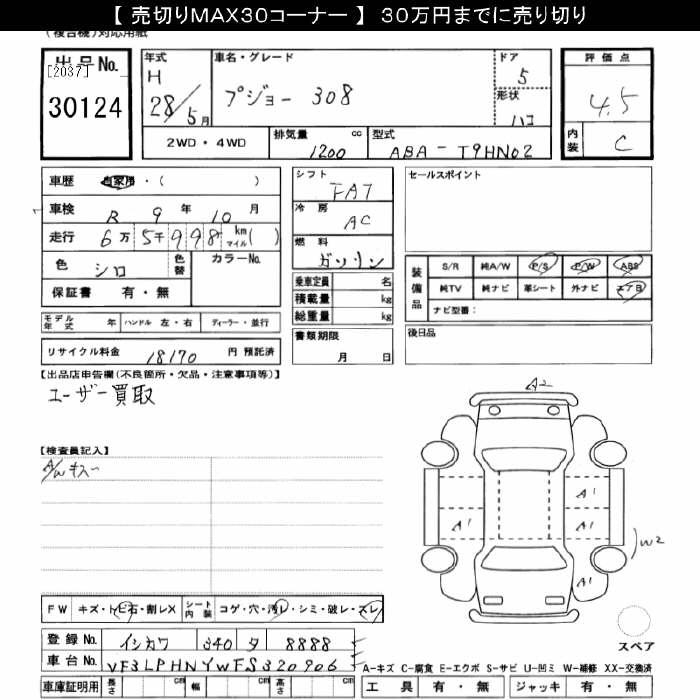 【 売切りMAX30コーナー 】 30万円までに売り切り
(複合機)対応用紙
出品No.
[2037]
30124
年式
H
28/5月
車名・グレード
プジョー 308
ドア
5
形状
ハコ
評価点
4.5
内装
C
2WD・4WD
排気量 cc
1200
型式
ABA-T9HN02
車歴 自家用・( )
車検 R 9 年 10 月
走行 6万 5千 998 km マイル( )
色 シロ 色替
カラーNo.
保証書 有・無
シフト
FAT
冷房
AC
燃料
ガソリン
乗車定員 名
積載量 kg
総重量 kg
セールスポイント
装備品
S/R 純A/W P/S P/W ABS
純TV 純ナビ 革シート 外ナビ エアB
ナビ型番:
モデル年式 年 ハンドル 左・右 ディーラー・並行
リサイクル料金 18170 円 預託済
書類期限
月 日
後日品
【出品店申告欄(不良箇所・欠品・注意事項等)】
ユーザー買取
【検査員記入】
A/Wキズ
A2
A1
A1
A1
A1
W2
FW キズ・トビ石・割レX
シート内装 コゲ・穴・汚レ・シミ・破レ・スレ
スペア
登録No. イシカワ 340 タ 8888
車台No. VF3LPHNYWFS320906
A-キズ C-腐食 E-エクボ S-サビ U-凹ミ W-補修 XX-交換済
車庫証明用 長さ cm 幅 cm 高さ cm
工具 有・無 ジャッキ 有・無